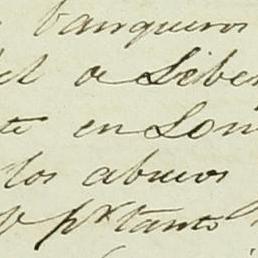 banqueros
el o Liber
te en Lon
los abusos
pr tanto